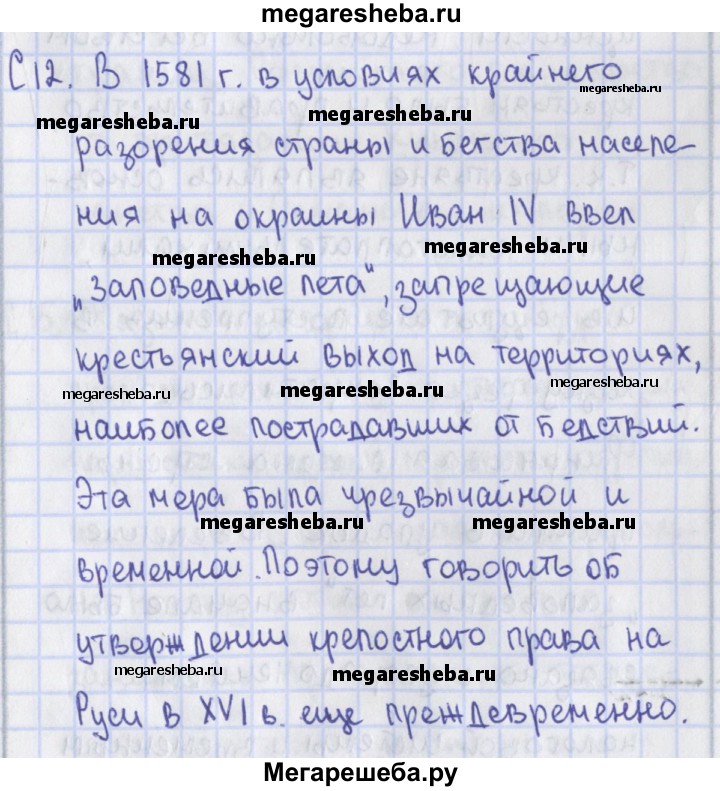 megaresheba.ru
С12. В 1581 г. в условиях крайнего
megaresheba.ru
megaresheba.ru
megaresheba.ru
разорения страны и бегства населе-
ния на окраины Иван IV ввел
megaresheba.ru
megaresheba.ru
„заповедные лета“, запрещающие
крестьянский выход на территориях,
megaresheba.ru
megaresheba.ru
megaresheba.ru
наиболее пострадавших от бедствий.
Эта мера была чрезвычайной и
megaresheba.ru
megaresheba.ru
временной. Поэтому говорить об
утверждении крепостного права на
megaresheba.ru
megaresheba.ru
Руси в XVI в. еще преждевременно.
Мегарешеба.ру